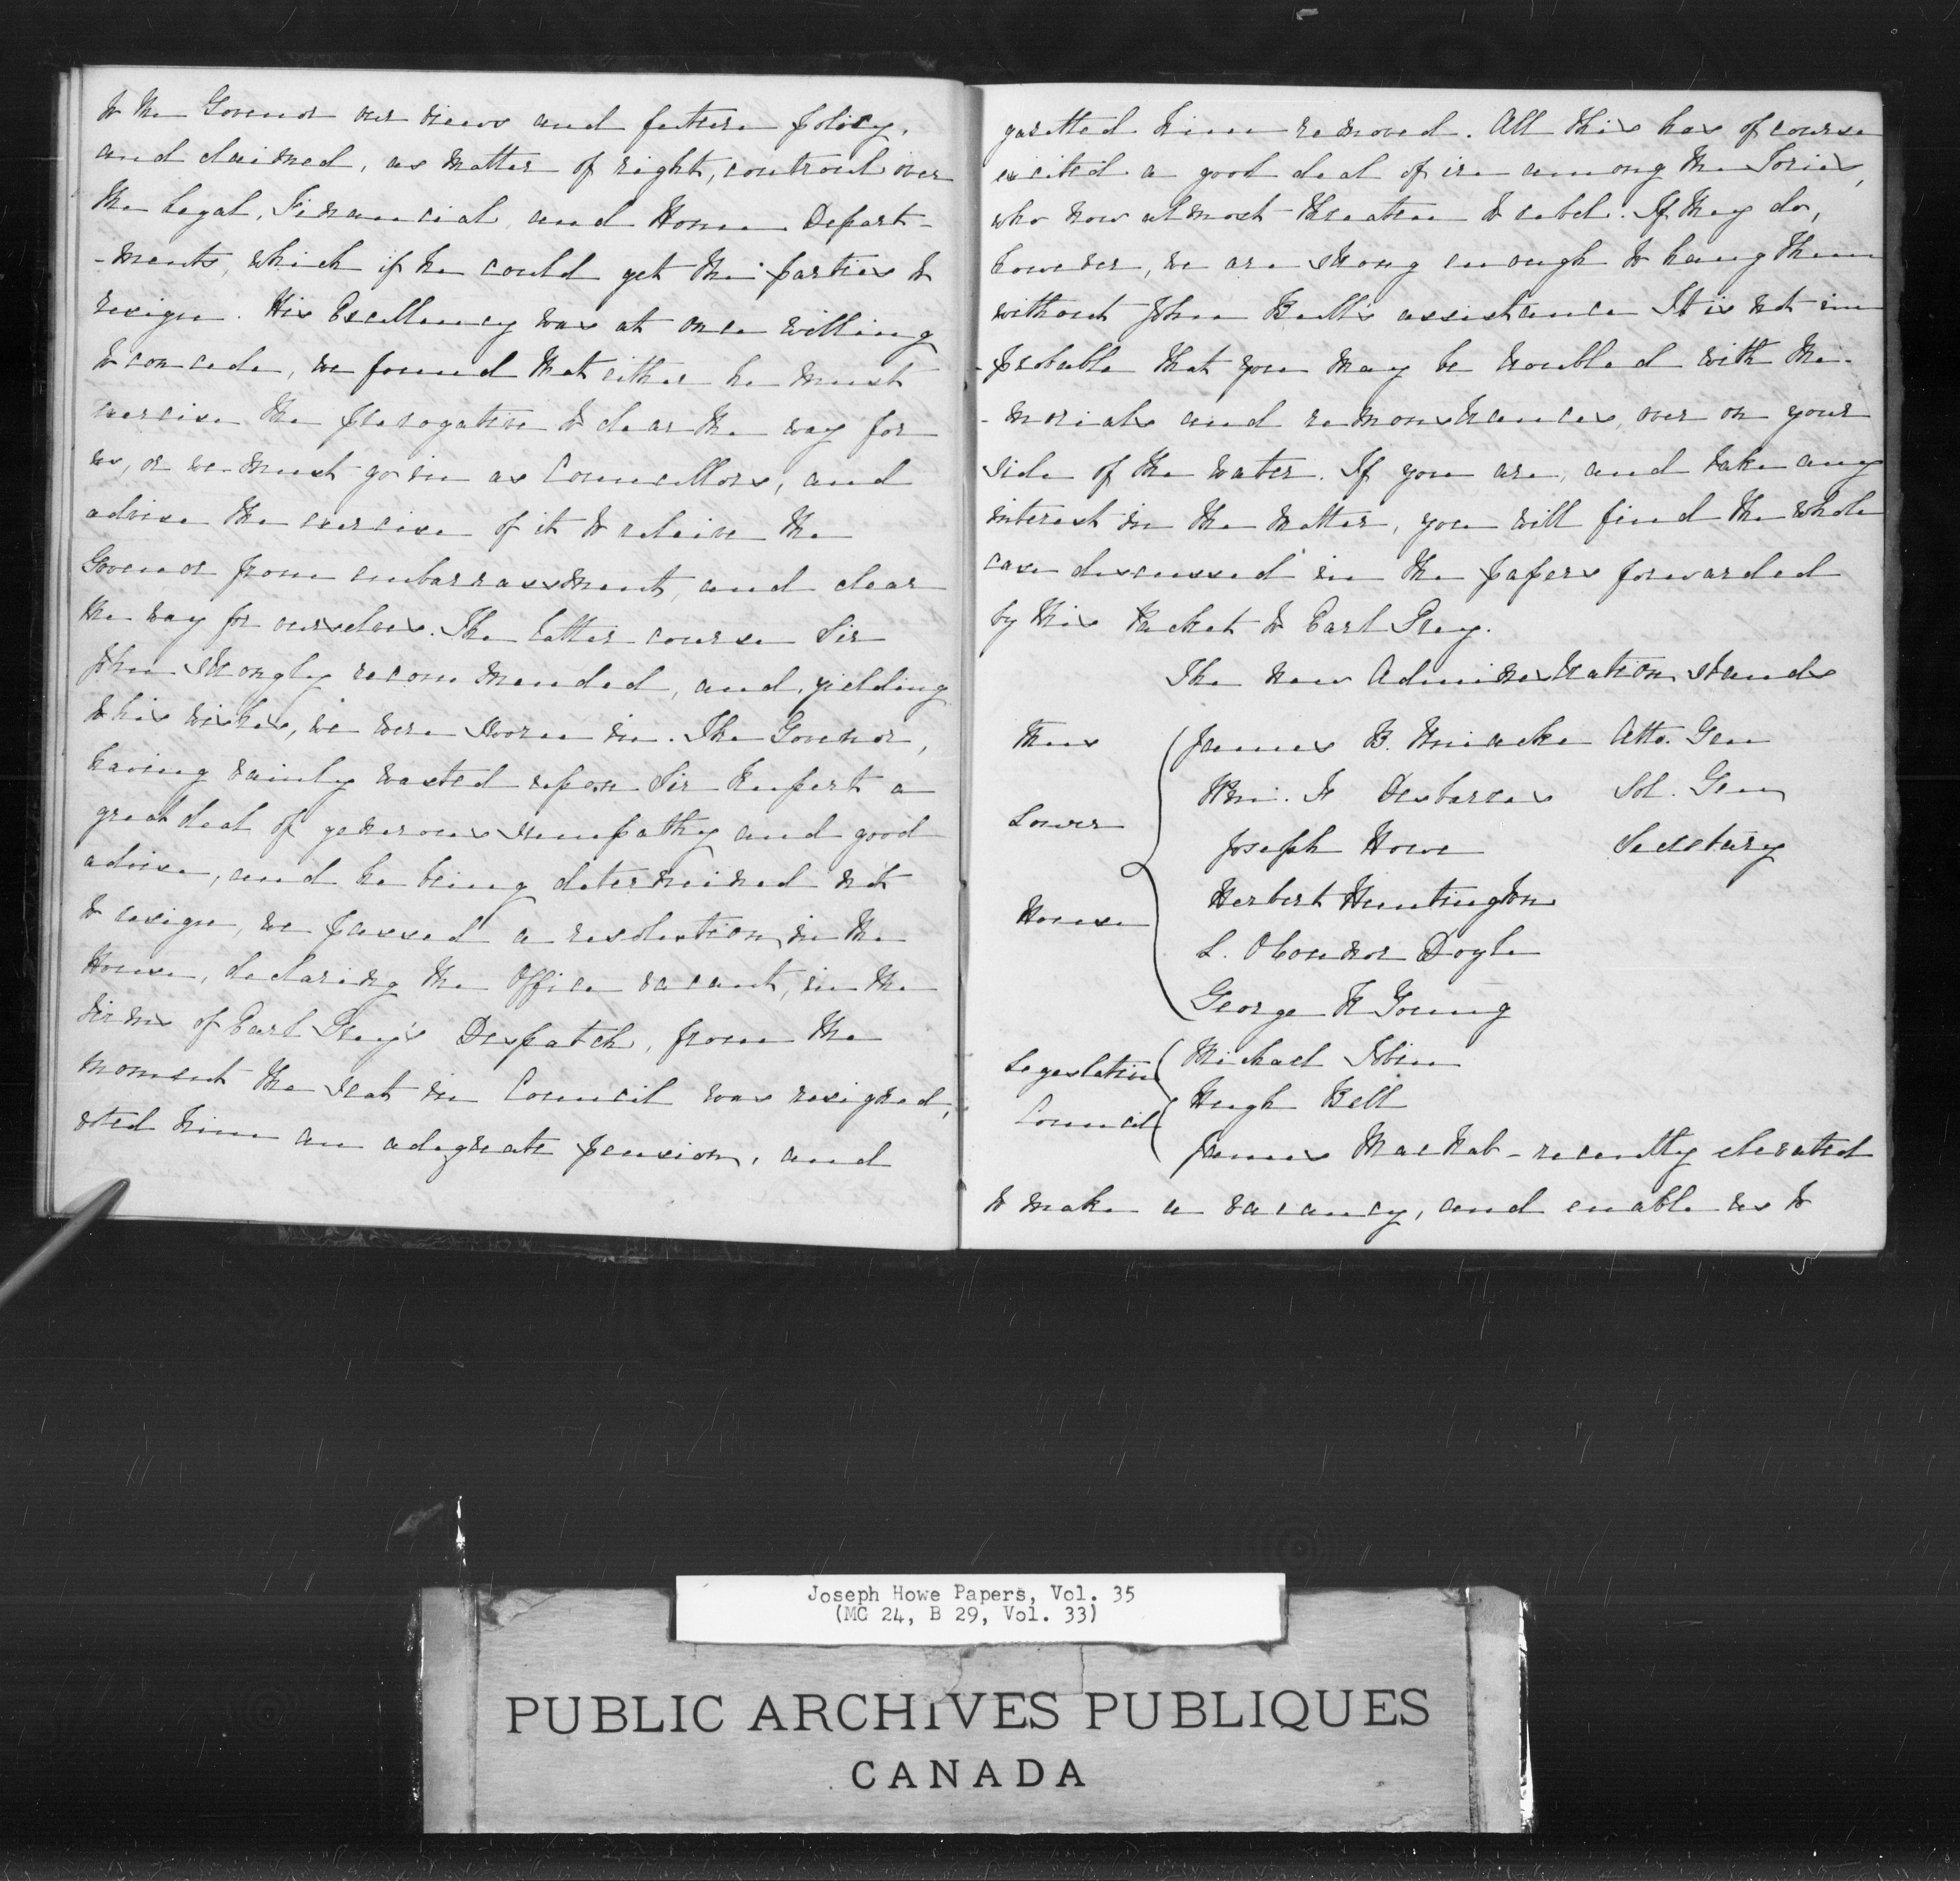 to the Govenor our views and future policy,
and claimed, as matter of right, controul over
the Legal, Financial, and Home Depart-
-ments, which if he could get the parties to
resign. His Excellency was at once willing
to concede, we found that either he must
exercise the prerogative to clear the way for
us, or we must go in as Councillors, and
advise the exercise of it to releive the
Govenor from embarrassment, and clear
the way for ourselves. The latter course Sir
John strongly recommended, and, yielding
to his wishes, we were sworn in. The Govenor,
having vainly wasted upon Sir Rupert a
great deal of generous sympathy and good
advise, and he being determined not
to resign, we passed a resolution, in the
House, declaring the Office vacant, in the
terms of Earl Grey's Despatch, from the
moment the seat in Council was resigned,
voted him an adequate pension, and
gazetted him removed. All this has of course
excited a good deal of ire among the Tories,
who now almost threaten to rebel. If they do,
however, we are strong enough to hang them
without John Bull's assistance It is not im
-probable that you may be troubled with me-
-morials and remonstrances, over on your
side of the water. If you are, and take any
interest in the matter, you will find the whole
case discussed in the papers forwarded
by this Packet to Earl Grey.
The new Administration stands
thus James B. Uniacke Atto. Gen
Wm. F Desbarres Sol. Gen
Lower
Joseph Howe Secretary
Herbert Huntington
House
L. OConnor Doyle
George R Young
Legislative Michael Tobin
Council Hugh Bell
James MacNab - recently elevated
to make a vacancy, and enable us to
Joseph Howe Papers, Vol. 35
(MG 24, B 29, Vol. 33)
PUBLIC ARCHIVES PUBLIQUES
CANADA